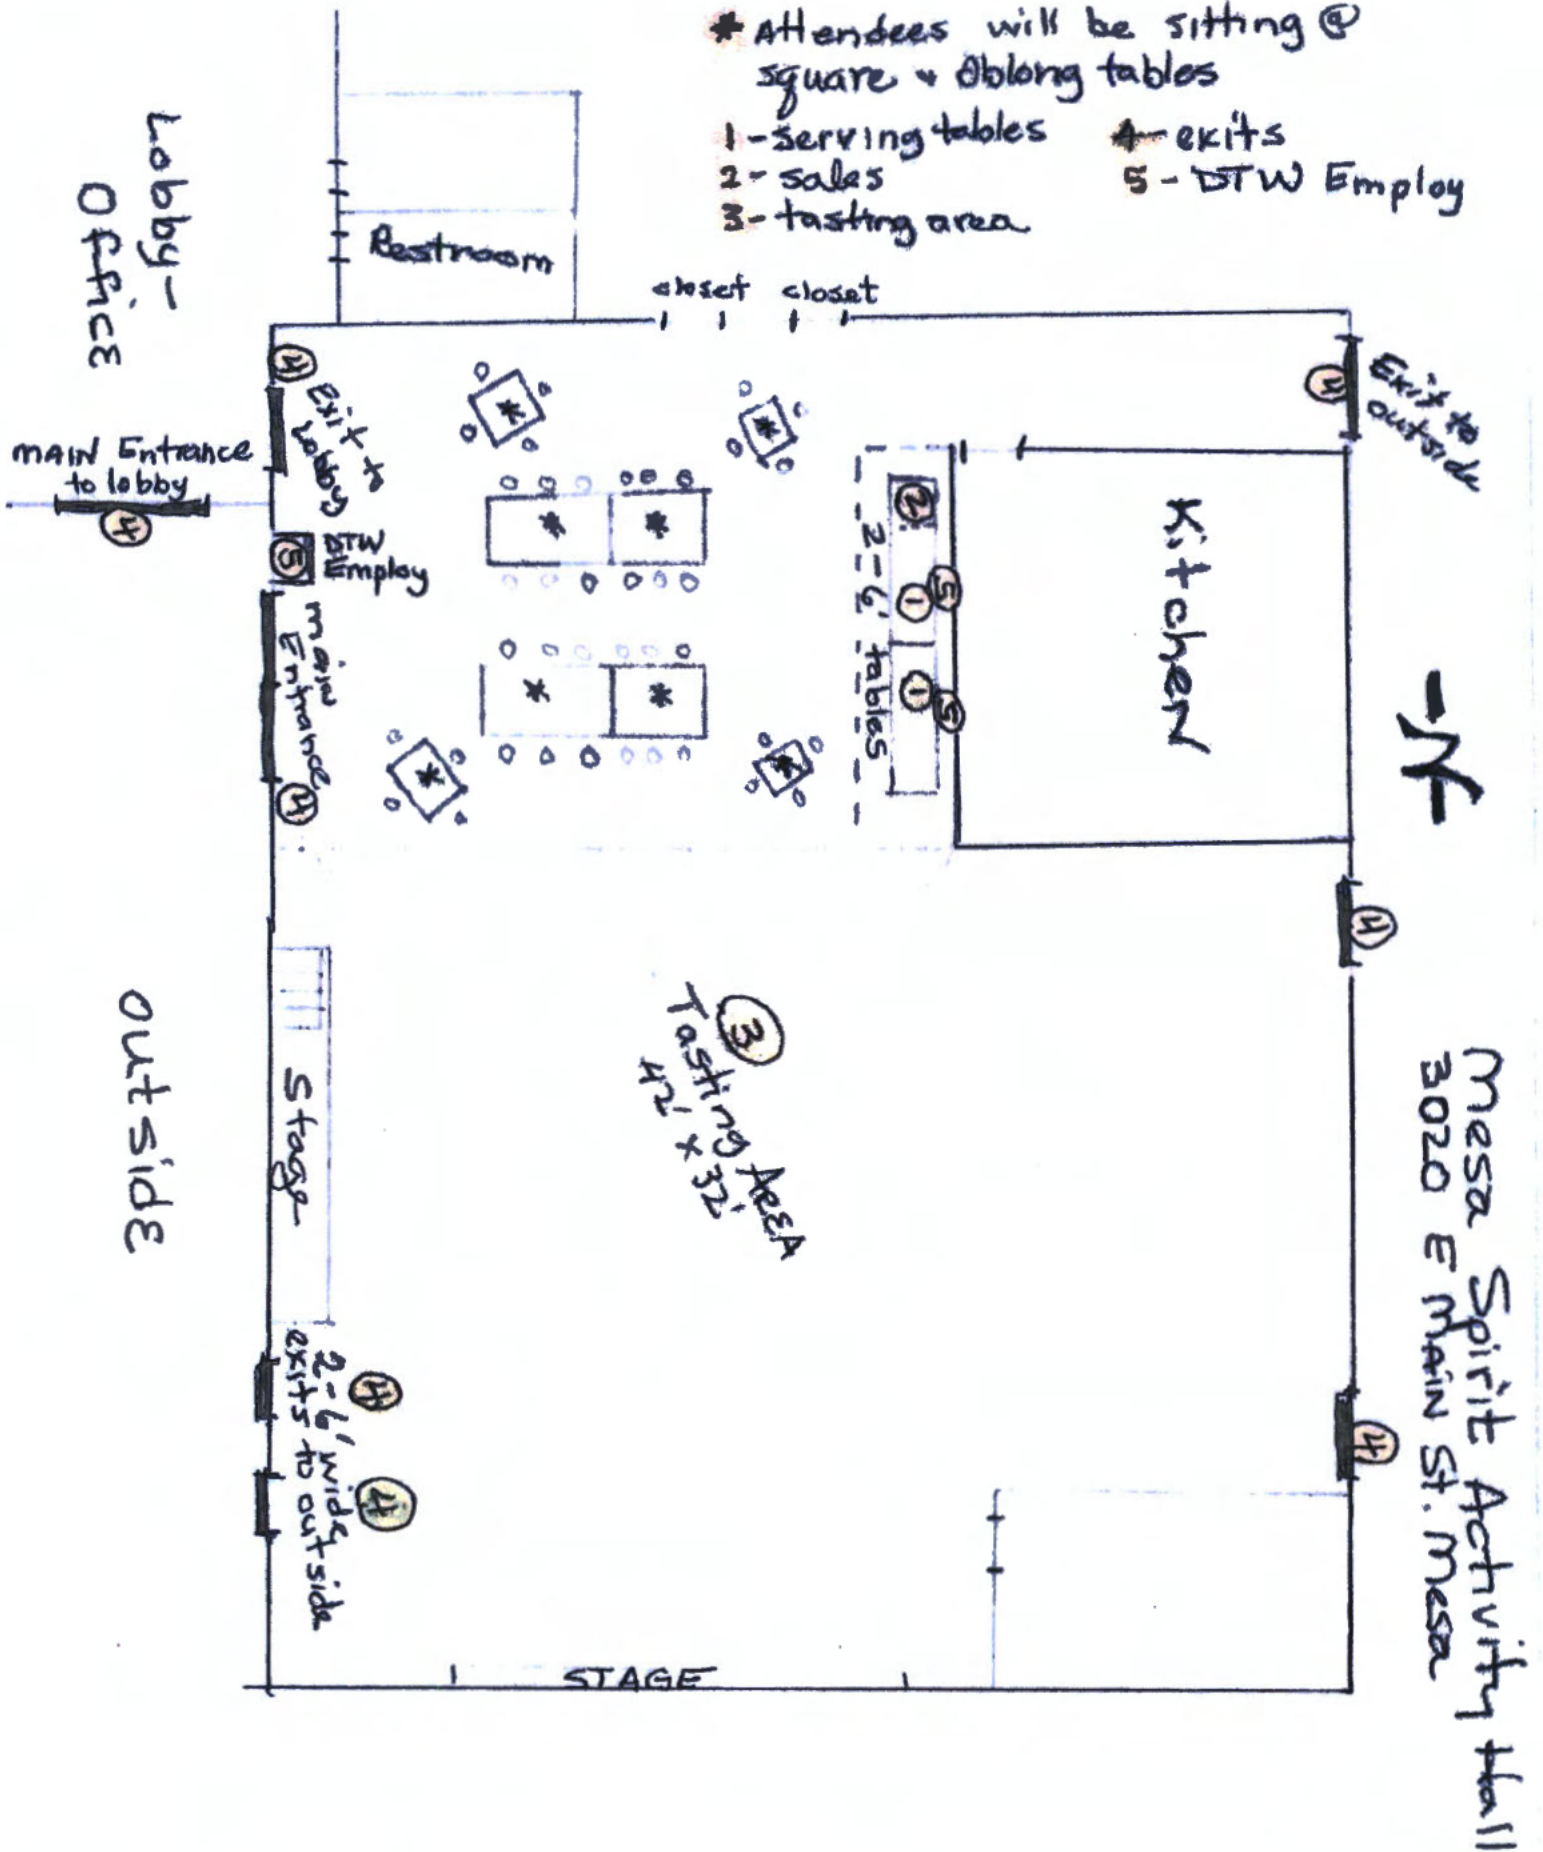 * Attendees will be sitting @
square & Oblong tables
1-serving tables
4- exits
2- sales
5 - DTW Employ
3-tasting area
Lobby-
Office
Restroom
closet closet
4
Exit to
Lobby
MAIN Entrance
to lobby
4
5
DTW
Employ
main
Entrance
4
*
*
*
*
*
*
*
*
2
1
1
5
5
2-6' tables
Kitchen
4
Exit to
outside
N
4
3
Tasting AREA
42' x 32'
outside
Stage
2-6' wide
exits to outside
4
4
4
STAGE
Mesa Spirit Activity Hall
3020 E MAIN St. Mesa